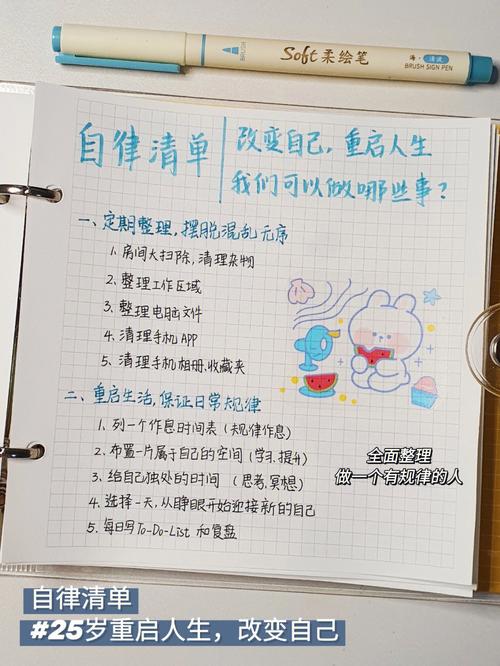 Soft 柔绘笔
BRUSH
海·清波
BRUSH SIGN PEN
自律清单
改变自己，重启人生
我们可以做哪些事？
一、定期整理，摆脱混乱无序
1. 房间大扫除，清理杂物
2、整理工作区域
3、整理电脑文件
4、清理手机APP
5、清理手机相册、收藏夹
二、重启生活，保证日常规律
1、列一个作息时间表（规律作息）
2、布置一片属于自己的空间（学习、提升）
3、给自己独处的时间（思考、冥想）
4、选择一天，从睁眼开始迎接新的自己
5、每日写To-Do-List 和复盘
全面整理
做一个有规律的人
自律清单
#25岁重启人生，改变自己